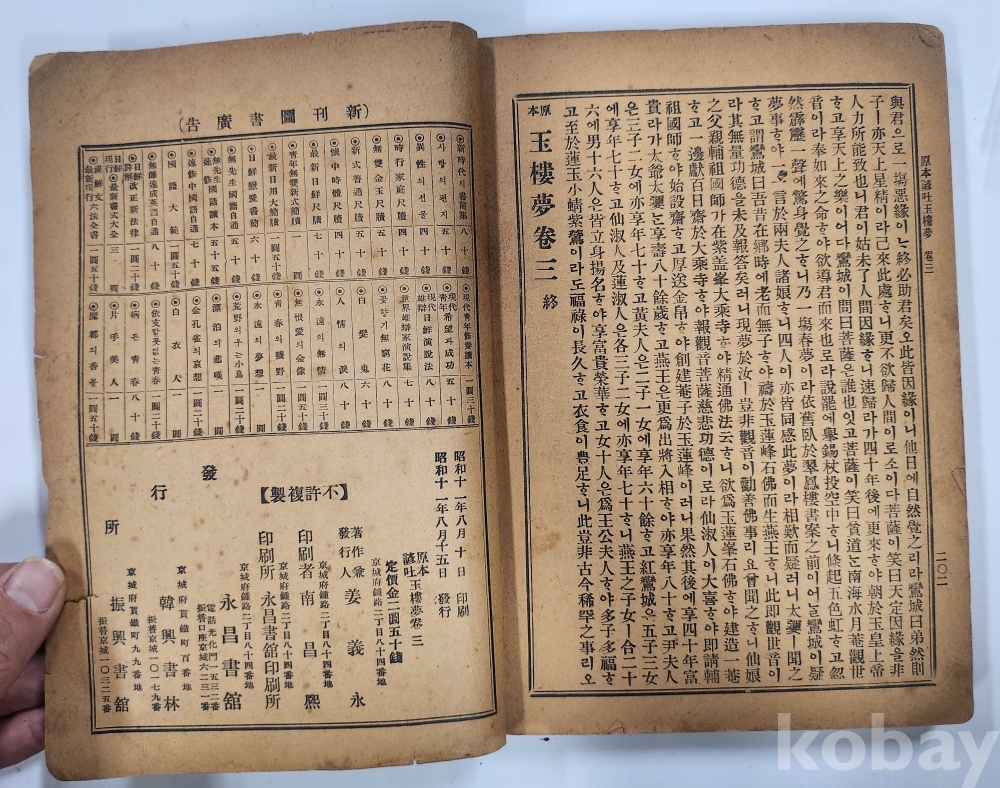 原本諺吐玉樓夢 卷三
二〇二
與君으로一塲惡緣이는終必助君矣오此皆因緣이니他日에自然覺之리라鸞城曰弟然則
子ㅣ亦天上星精이라己來此處하니更不欲歸人間이로소이다菩薩이笑曰天定因緣을非
人力所能致也니君이姑未了人間因緣하니速歸라가四十年後에更來하야朝於玉皇上帝
하고享天上之樂이어다鸞城이問曰菩薩은誰也잇고菩薩이笑曰貧道는南海水月菴觀世
音이라奉如來之命하야欲導君而來也로라說罷에擧錫杖投空中하니倏起五色虹하고忽
然霹靂一聲에驚身覺之하니乃一塲春夢이라依舊臥於翠鳳樓書案之前이어늘鸞城이疑
夢事하야一一言於兩夫人諸娘하니四人이亦皆同感此夢이라相歎而疑러니太爺ㅣ聞之
하고謂鸞城曰吾昔在鄕時에老而無子하야禱於玉蓮峰石佛而生燕王하니此即觀世音이
라其無量功德을未及報答矣러니現夢於汝ㅣ豈非觀音이勸善佛事리요曾聞之하니仙娘
之父親輔祖國師ㅣ在紫盖峯大乘寺하야精通佛法云하니欲爲玉蓮峯石佛하야建造一菴
하고一邊獻百日齋於大乘寺하야報觀音菩薩慈悲功德이로라仙淑人이大喜하야即請輔
祖國師하야始設齋하고厚送金帛하야創建菴子於玉蓮峰이러니果然其後에享四十年富
貴라가太爺太夫人은享壽八十餘歲하고燕王은更爲出將入相하야亦享年八十하고尹夫人
은三子二女에亦享年七十하고黃夫人은二子一女에享年六十餘하고紅鸞城은五子三女
에享年七十하고仙淑人及蓮淑人은各三子二女에亦享年七十하니燕王之子女ㅣ合二十
六에男十六人은皆立身揚名하야享富貴榮華하고女十人은爲王公夫人하야多子多福하
고至於蓮玉小蜻紫鶯이라도福祿이長久하고衣食이豊足하니此豈非古今稀罕之事리오
原本 玉樓夢卷三 終
(新刊圖書廣告)
◎新時代의書簡集 八十錢
◎사랑의편지 四十錢
◎異性의선물 四十錢
◎時行家庭尺牘 四十錢
◎無雙金玉尺牘 四十錢
◎新式普通尺牘
◎懷中時體尺牘
◎最新日鮮尺牘 一圓
◎青年無雙新式簡牘
◎最新日用大簡牘 一圓五十錢
◎日鮮戀愛書簡 六十錢
◎無先生國語自通 五十錢
◎無先生速修國語讀本 五十五錢
◎速修中國語自通 七十錢
◎國語大範 一圓五十錢
◎無師速成英語自通 八十錢
◎日鮮註解改正新法律 一圓二十錢
◎日鮮現行最新書式大全 一圓三十錢
◎漢鮮文最新現行六法全書 一圓五十錢
◎現代青年修養讀本 一圓三十錢
◎現代青年希望과成功 五十錢
◎現代雄辯日鮮演說法 八十錢
◎世界雄辯家演說集 七十錢
◎꽃향기無窮花 六十錢
◎白髮鬼 六十錢
◎人情의淚 八十錢
◎永遠의無情 一圓三十錢
◎無情의金像 一圓五十錢
◎青春의曠野
◎永遠의夢想 一圓
◎荒野의우는小鳥 一圓二十錢
◎漂泊의悲嘆 一圓
◎金孔雀의哀想 一圓二十錢
◎白衣人 一圓
◎依支할곳없는青春 八十錢
◎病든青春 八十錢
◎片手美人 一圓
◎魔鄕의香물 一圓五十錢
昭和十一年八月十日 印刷
昭和十一年八月十五日 發行
原本諺吐玉樓夢 卷三
定價金二圓五十錢
【不許複製】
京城府鍾路二丁目八十四番地
著作兼發行人 姜義永
京城府鍾路二丁目八十四番地
印刷者 南昌熙
印刷所 永昌書舘印刷所
京城府鍾路二丁目八十四番地
永昌書舘
電話光化門一五三二番
振替口座京城六二三一番
發行所
京城府貫鐵町九九番地
韓興書林
振替京城一〇一七九番
京城府貫鐵町百番地
振興書舘
振替京城一〇三二五番
kobay